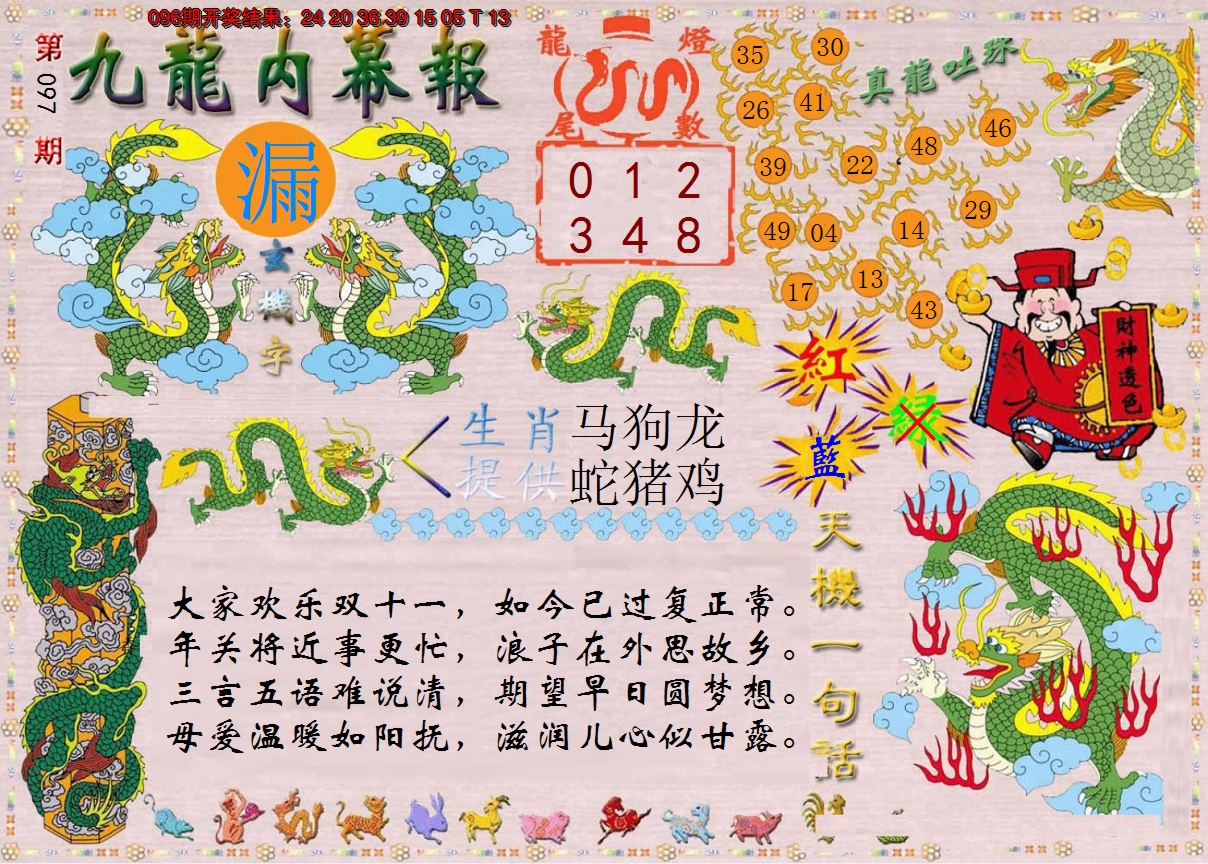 096期开奖结果：24 20 36 39 15 05 T 13
第097期
九龍内幕報
漏
玄機字
龍燈
尾數
0 1 2
3 4 8
真龍吐珠
35 30
26 41
48 46
39 22
29
49 04 14
17 13
43
紅
绿
藍
財神透色
生肖 马狗龙
提供 蛇猪鸡
天機一句話
大家欢乐双十一，如今已过复正常。
年关将近事更忙，浪子在外思故乡。
三言五语难说清，期望早日圆梦想。
母爱温暖如阳抚，滋润儿心似甘露。